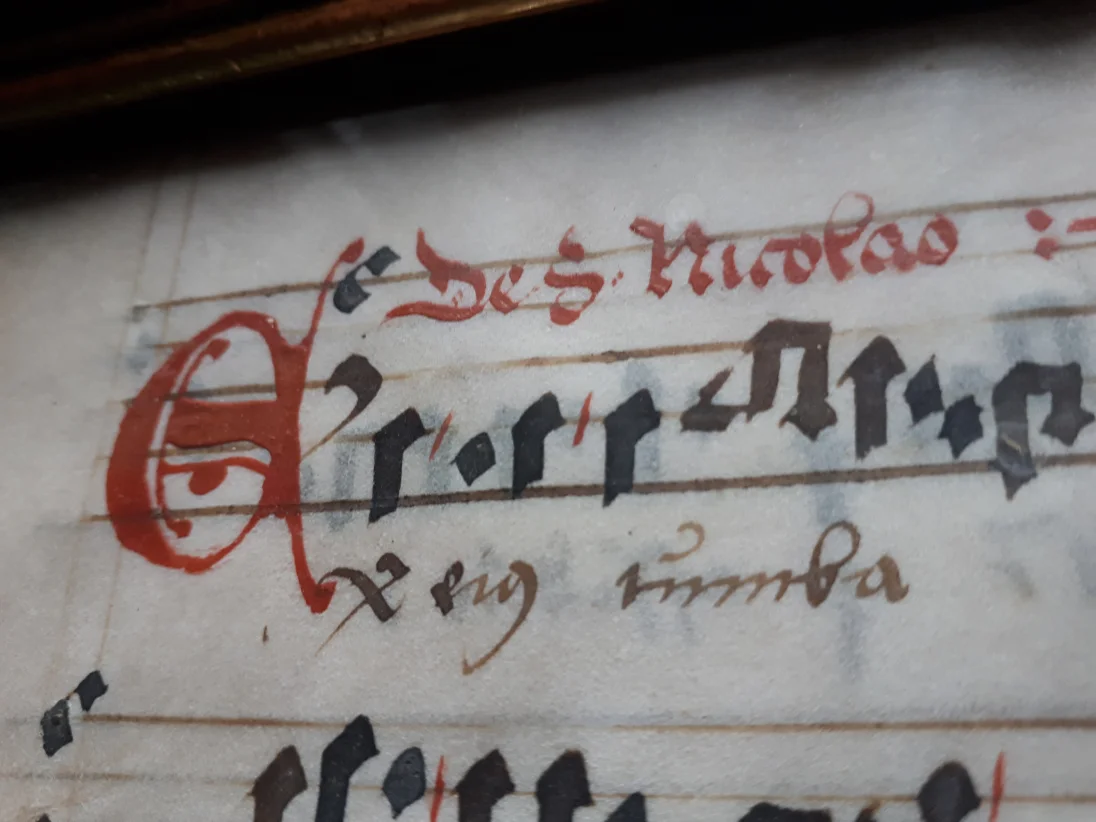 De S. Nicolao
Ex eiꝰ tumba